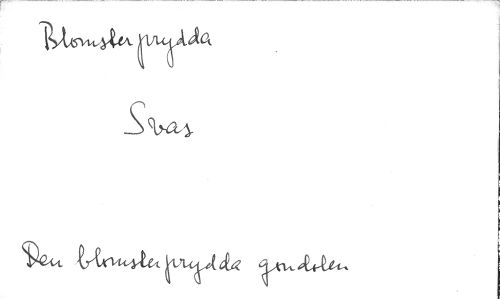 Blomsterprydda
Svas
Den blomsterprydda gondolen